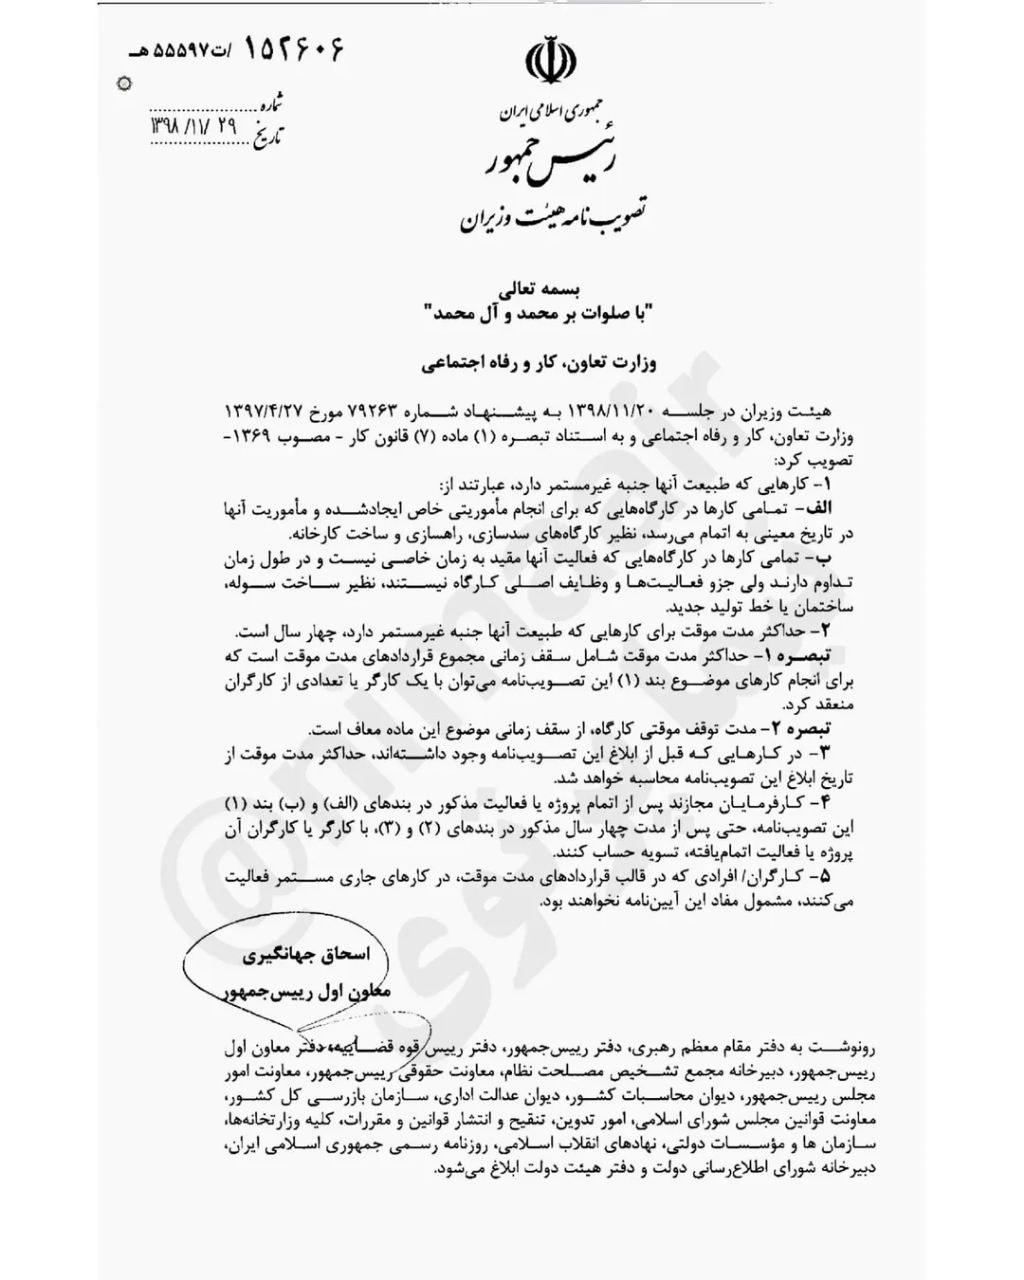 ۱۵۲۶۰۶ /ت۵۵۵۹۷هـ
شماره
تاریخ ۲۹ /۱۱/ ۱۳۹۸
جمهوری اسلامی ایران
رئیس جمهور
تصویب نامه هیئت وزیران
بسمه تعالی
"با صلوات بر محمد و آل محمد"
وزارت تعاون، کار و رفاه اجتماعی
هیئت وزیران در جلسه ۱۳۹۸/۱۱/۲۰ به پیشنهاد شماره ۷۹۲۶۳ مورخ ۱۳۹۷/۴/۲۷
وزارت تعاون، کار و رفاه اجتماعی و به استناد تبصره (۱) ماده (۷) قانون کار - مصوب ۱۳۶۹-
تصویب کرد:
۱- کارهایی که طبیعت آنها جنبه غیرمستمر دارد، عبارتند از:
الف- تمامی کارها در کارگاه‌هایی که برای انجام مأموریتی خاص ایجادشده و مأموریت آنها
در تاریخ معینی به اتمام می‌رسد، نظیر کارگاه‌های سدسازی، راهسازی و ساخت کارخانه.
ب- تمامی کارها در کارگاه‌هایی که فعالیت آنها مقید به زمان خاصی نیست و در طول زمان
تداوم دارند ولی جزو فعالیت‌ها و وظایف اصلی کارگاه نیستند، نظیر ساخت سوله،
ساختمان یا خط تولید جدید.
۲- حداکثر مدت موقت برای کارهایی که طبیعت آنها جنبه غیرمستمر دارد، چهار سال است.
تبصره ۱- حداکثر مدت موقت شامل سقف زمانی مجموع قراردادهای مدت موقت است که
برای انجام کارهای موضوع بند (۱) این تصویب‌نامه می‌توان با یک کارگر یا تعدادی از کارگران
منعقد کرد.
تبصره ۲- مدت توقف موقتی کارگاه، از سقف زمانی موضوع این ماده معاف است.
۳- در کارهایی که قبل از ابلاغ این تصویب‌نامه وجود داشته‌اند، حداکثر مدت موقت از
تاریخ ابلاغ این تصویب‌نامه محاسبه خواهد شد.
۴- کارفرمایان مجازند پس از اتمام پروژه یا فعالیت مذکور در بندهای (الف) و (ب) بند (۱)
این تصویب‌نامه، حتی پس از مدت چهار سال مذکور در بندهای (۲) و (۳)، با کارگر یا کارگران آن
پروژه یا فعالیت اتمام‌یافته، تسویه حساب کنند.
۵- کارگران/ افرادی که در قالب قراردادهای مدت موقت، در کارهای جاری مستمر فعالیت
می‌کنند، مشمول مفاد این آیین‌نامه نخواهند بود.
اسحاق جهانگیری
معاون اول رییس‌جمهور
رونوشت به دفتر مقام معظم رهبری، دفتر رییس‌جمهور، دفتر رییس قوه قضاییه، دفتر معاون اول
رییس‌جمهور، دبیرخانه مجمع تشخیص مصلحت نظام، معاونت حقوقی رییس‌جمهور، معاونت امور
مجلس رییس‌جمهور، دیوان محاسبات کشور، دیوان عدالت اداری، سازمان بازرسی کل کشور،
معاونت قوانین مجلس شورای اسلامی، امور تدوین، تنقیح و انتشار قوانین و مقررات، کلیه وزارتخانه‌ها،
سازمان ها و مؤسسات دولتی، نهادهای انقلاب اسلامی، روزنامه رسمی جمهوری اسلامی ایران،
دبیرخانه شورای اطلاع‌رسانی دولت و دفتر هیئت دولت ابلاغ می‌شود.